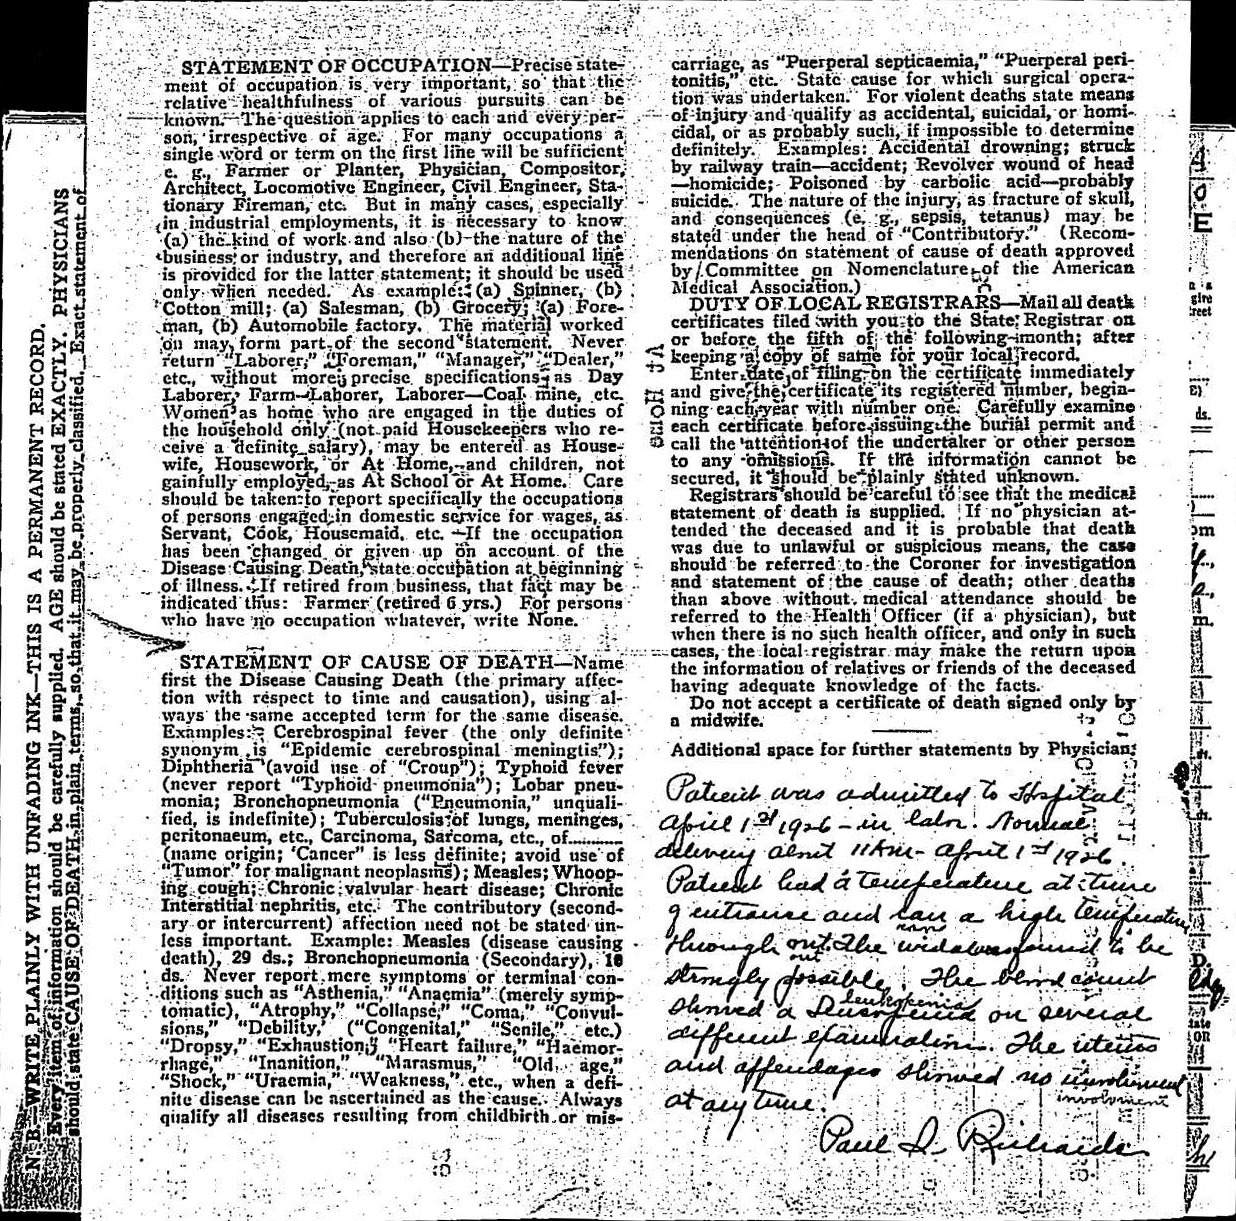 N. B.—WRITE PLAINLY WITH UNFADING INK—THIS IS A PERMANENT RECORD.
Every item of information should be carefully supplied. AGE should be stated EXACTLY. PHYSICIANS
should state CAUSE OF DEATH in plain terms, so that it may be properly classified. Exact statement of
STATEMENT OF OCCUPATION—Precise state-
ment of occupation is very important, so that the
relative healthfulness of various pursuits can be
known. The question applies to each and every per-
son, irrespective of age. For many occupations a
single word or term on the first line will be sufficient
e. g., Farmer or Planter, Physician, Compositor,
Architect, Locomotive Engineer, Civil Engineer, Sta-
tionary Fireman, etc. But in many cases, especially
in industrial employments, it is necessary to know
(a) the kind of work and also (b) the nature of the
business or industry, and therefore an additional line
is provided for the latter statement; it should be used
only when needed. As example: (a) Spinner, (b)
Cotton mill; (a) Salesman, (b) Grocery; (a) Fore-
man, (b) Automobile factory. The material worked
on may form part of the second statement. Never
return "Laborer," "Foreman," "Manager," "Dealer,"
etc., without more precise specifications, as Day
Laborer, Farm Laborer, Laborer—Coal mine, etc.
Women as home who are engaged in the duties of
the household only (not paid Housekeepers who re-
ceive a definite salary), may be entered as House-
wife, Housework, or At Home, and children, not
gainfully employed, as At School or At Home. Care
should be taken to report specifically the occupations
of persons engaged in domestic service for wages, as
Servant, Cook, Housemaid, etc. If the occupation
has been changed or given up on account of the
Disease Causing Death, state occupation at beginning
of illness. If retired from business, that fact may be
indicated thus: Farmer (retired 6 yrs.) For persons
who have no occupation whatever, write None.
STATEMENT OF CAUSE OF DEATH—Name
first the Disease Causing Death (the primary affec-
tion with respect to time and causation), using al-
ways the same accepted term for the same disease.
Examples: Cerebrospinal fever (the only definite
synonym is "Epidemic cerebrospinal meningtis");
Diphtheria (avoid use of "Croup"); Typhoid fever
(never report "Typhoid pneumonia"); Lobar pneu-
monia; Bronchopneumonia ("Pneumonia," unquali-
fied, is indefinite); Tuberculosis of lungs, meninges,
peritonaeum, etc., Carcinoma, Sarcoma, etc., of............
(name origin; 'Cancer" is less definite; avoid use of
"Tumor" for malignant neoplasms); Measles; Whoop-
ing cough; Chronic valvular heart disease; Chronic
Interstitial nephritis, etc. The contributory (second-
ary or intercurrent) affection need not be stated un-
less important. Example: Measles (disease causing
death), 29 ds.; Bronchopneumonia (Secondary), 10
ds. Never report mere symptoms or terminal con-
ditions such as "Asthenia," "Anaemia" (merely symp-
tomatic), "Atrophy," "Collapse," "Coma," "Convul-
sions," "Debility,' ("Congenital," "Senile," etc.)
"Dropsy," "Exhaustion," "Heart failure," "Haemor-
rhage," "Inanition," "Marasmus," "Old age,"
"Shock," "Uraemia," "Weakness," etc., when a defi-
nite disease can be ascertained as the cause. Always
qualify all diseases resulting from childbirth or mis-
carriage, as "Puerperal septicaemia," "Puerperal peri-
tonitis," etc. State cause for which surgical opera-
tion was undertaken. For violent deaths state means
of injury and qualify as accidental, suicidal, or homi-
cidal, or as probably such, if impossible to determine
definitely. Examples: Accidental drowning; struck
by railway train—accident; Revolver wound of head
—homicide; Poisoned by carbolic acid—probably
suicide. The nature of the injury, as fracture of skull,
and consequences (e. g., sepsis, tetanus) may be
stated under the head of "Contributory." (Recom-
mendations on statement of cause of death approved
by Committee on Nomenclature of the American
Medical Association.)
DUTY OF LOCAL REGISTRARS—Mail all death
certificates filed with you to the State Registrar on
or before the fifth of the following month; after
keeping a copy of same for your local record.
Enter date of filing on the certificate immediately
and give the certificate its registered number, begin-
ning each year with number one. Carefully examine
each certificate before issuing the burial permit and
call the attention of the undertaker or other person
to any omissions. If the information cannot be
secured, it should be plainly stated unknown.
Registrars should be careful to see that the medical
statement of death is supplied. If no physician at-
tended the deceased and it is probable that death
was due to unlawful or suspicious means, the case
should be referred to the Coroner for investigation
and statement of the cause of death; other deaths
than above without medical attendance should be
referred to the Health Officer (if a physician), but
when there is no such health officer, and only in such
cases, the local registrar may make the return upon
the information of relatives or friends of the deceased
having adequate knowledge of the facts.
Do not accept a certificate of death signed only by
a midwife.
Additional space for further statements by Physician:
Patient was admitted to Hospital
April 1st 1926 – in labor. Normal
delivery about 11 AM – April 1st 1926.
Patient had a temperature at time
of entrance and ran a high temperature
through out. The widal was found to be
strongly possible. The blood count
showed a leukopenia on several
different examinations. The uterus
and appendages showed no involvment
at any time.
Paul S. Richards